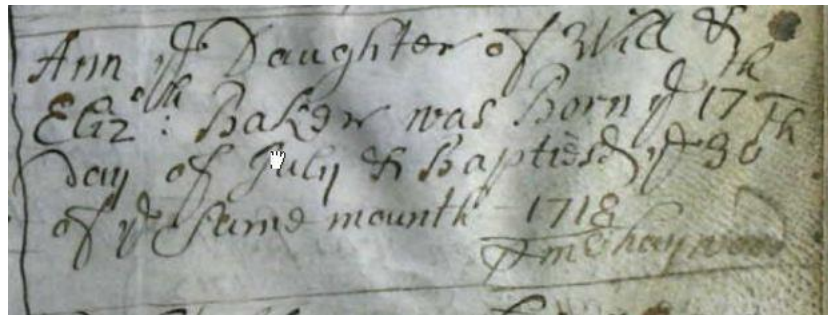 Ann ye Daughter of Will &
Eliz:th Baker was Born ye 17th
Day of July & Baptisd ye 30th
of ye same mounth 1718